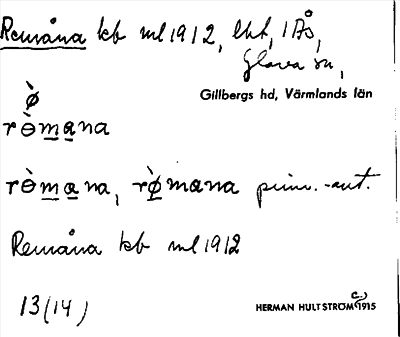 Remåna kb ml 1912, lht, 1 Ås,
Glava sn,
Gillbergs hd, Värmlands län
ø̀
rɵ̀mana
rɵ̀mana, rø̀mana pim.-aut.
Remåna kb ml 1912
13(14)
HERMAN HULTSTRÖM c. 1915